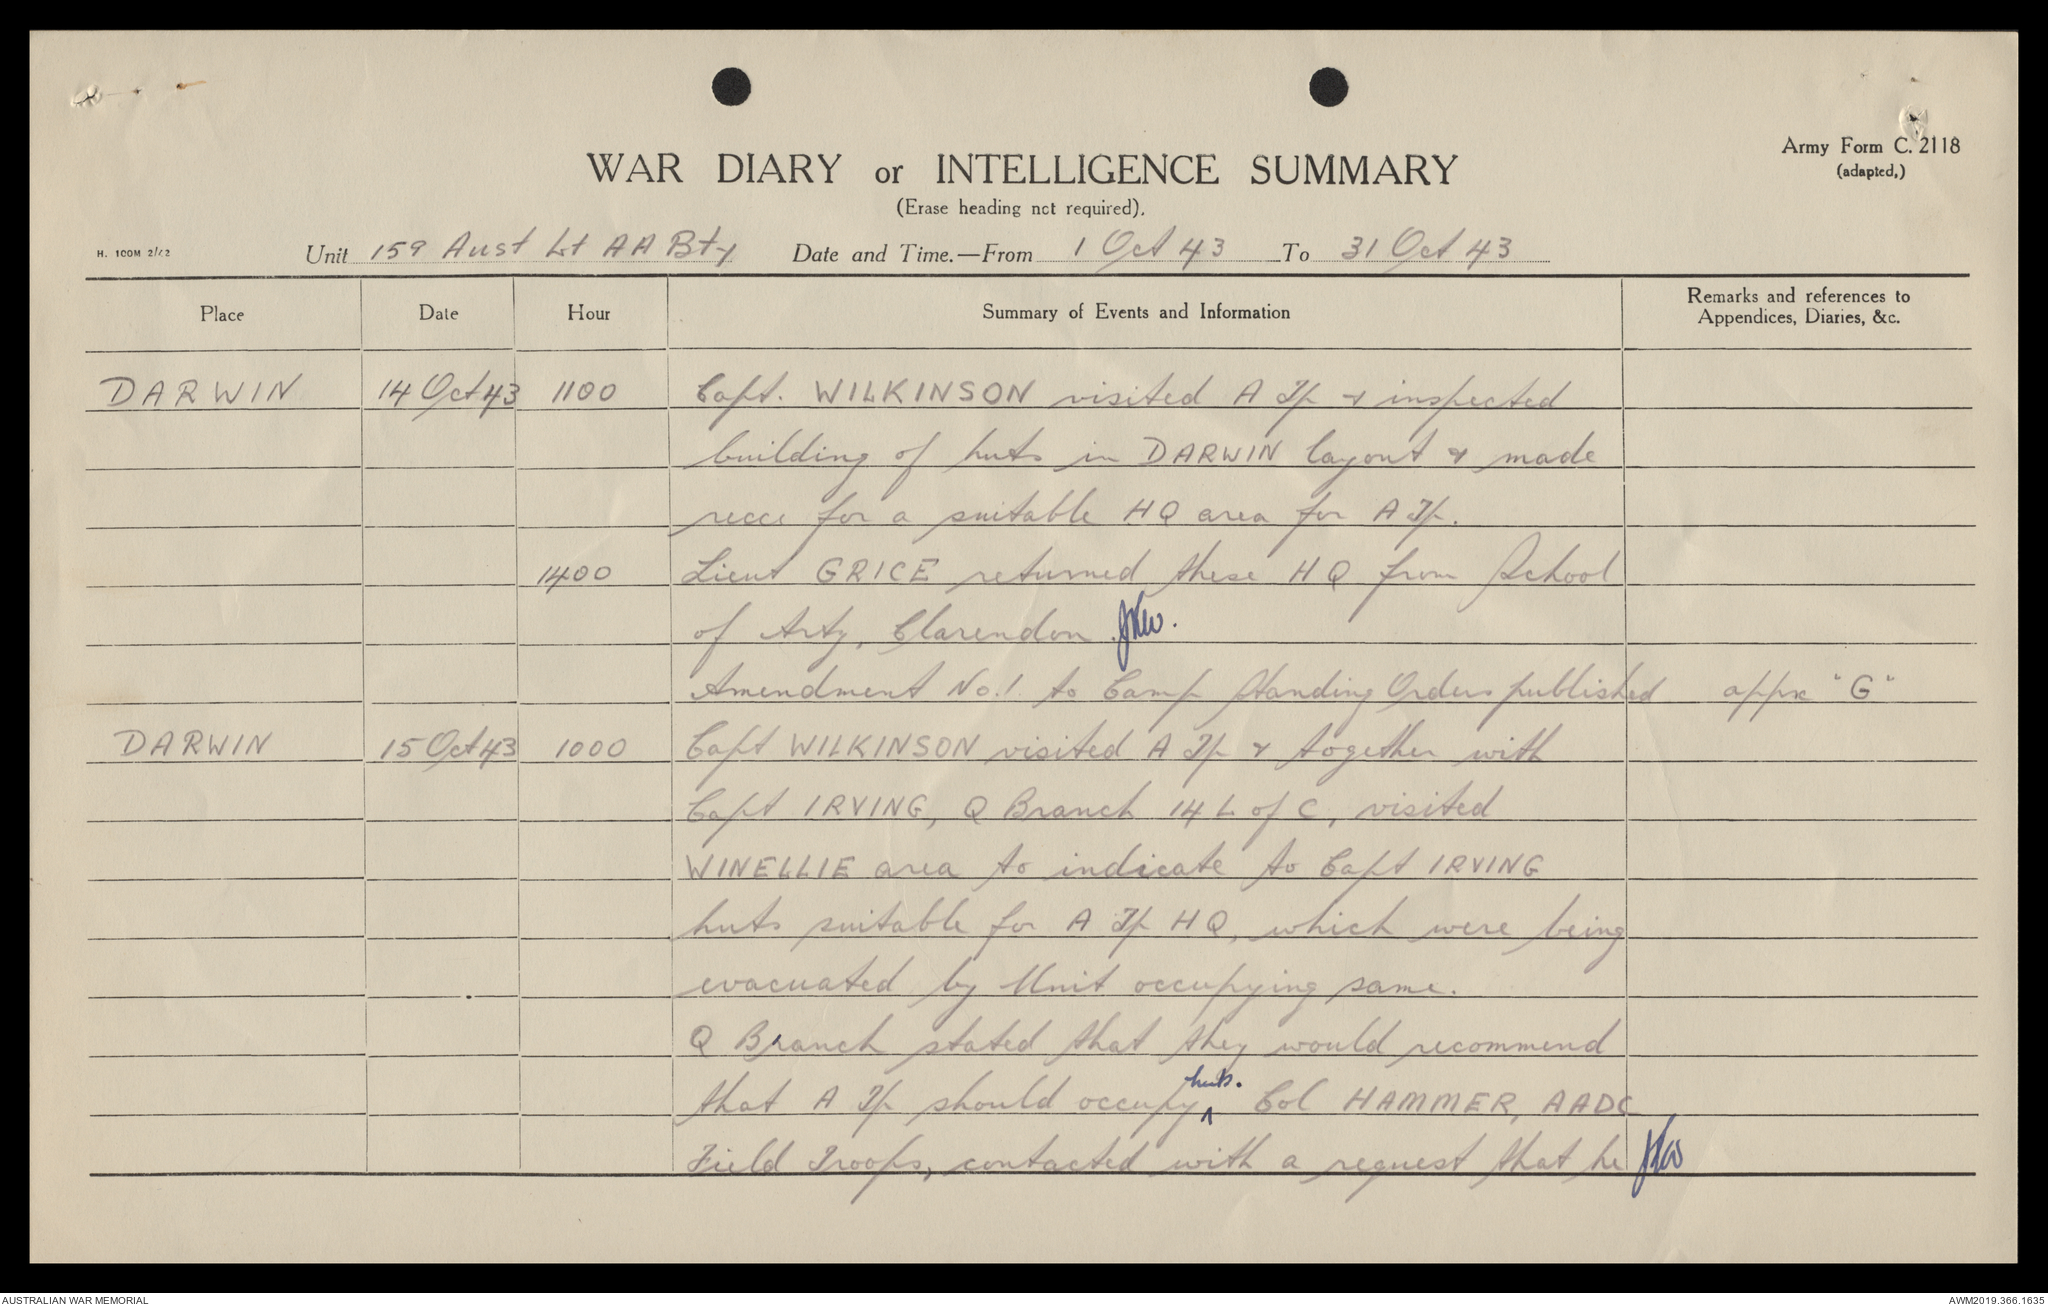 Army Form C. 2118
(adapted,)
WAR DIARY or INTELLIGENCE SUMMARY
(Erase heading not required).
H. 100M 2/42 Unit 159 Aust Lt AA Bty Date and Time.—From 1 Oct 43 To 31 Oct 43
Place Date Hour Summary of Events and Information Remarks and references to
Appendices, Diaries, &c.
DARWIN 14 Oct 43 1100 Capt. WILKINSON visited A Tp & inspected
building of huts in DARWIN layout & made
recce for a suitable HQ area for A Tp.
1400 Lieut GRICE returned these HQ from School
of Arty, Clarendon.
Amendment No.1. to Camp Standing Orders published appx "G"
DARWIN 15 Oct 43 1000 Capt WILKINSON visited A Tp & together with
Capt IRVING, Q Branch 14 L of C, visited
WINELLIE area to indicate to Capt IRVING
huts suitable for A Tp HQ, which were being
evacuated by Unit occupying same.
Q Branch stated that they would recommend
that A Tp should occupy ^ huts. Col HAMMER, AADC
Field Troops, contacted with a request that he
AUSTRALIAN WAR MEMORIAL AWM2019.366.1635